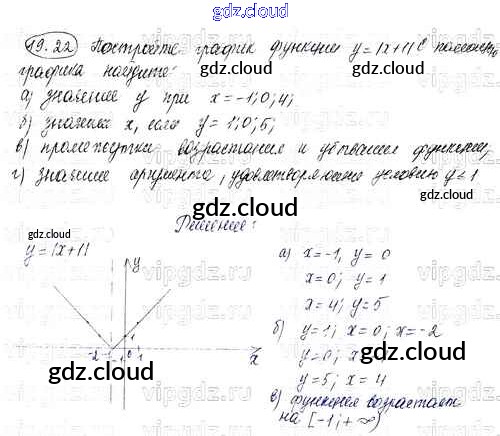 gdz.cloud
19.22 Постройте график функции y=|x+1| С помощью
графика найдите:
gdz.cloud
а) значение y при x=-1; 0; 4;
б) значения x, если y=1; 0; 5;
в) промежутки возрастания и убывания функции,
г) значение аргумента, удовлетворяющие условию y<1
gdz.cloud
Решение:
gdz.cloud
y=|x+1|
а) x=-1, y=0
x=0; y=1
x=4; y=5
б) y=1; x=0; x=-2
y=0; x
y=5; x=4
в) функция возрастает
на [-1; +∞)
y
-2 -1 0 1
1
x
gdz.cloud
gdz.cloud
gdz.cloud
vipgdz